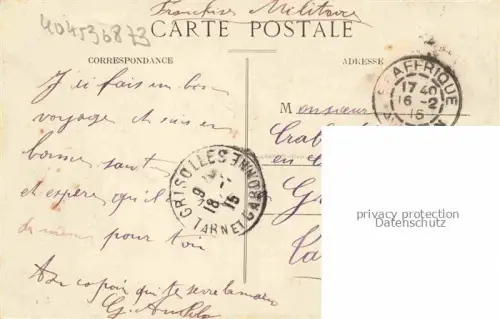 Franchise Militaire
404536873
CARTE POSTALE
CORRESPONDANCE
ADRESSE
J'ai fais un bon
voyage et suis en
bonne santé
et espère qu'il
de même pour toi
Ton copain qui te serre la main
G.
Monsieur
en
AFFRIQUE
17 40
16 -2
15
GRISOLLES
18
15
TARN ET GARONNE
privacy protection
Datenschutz